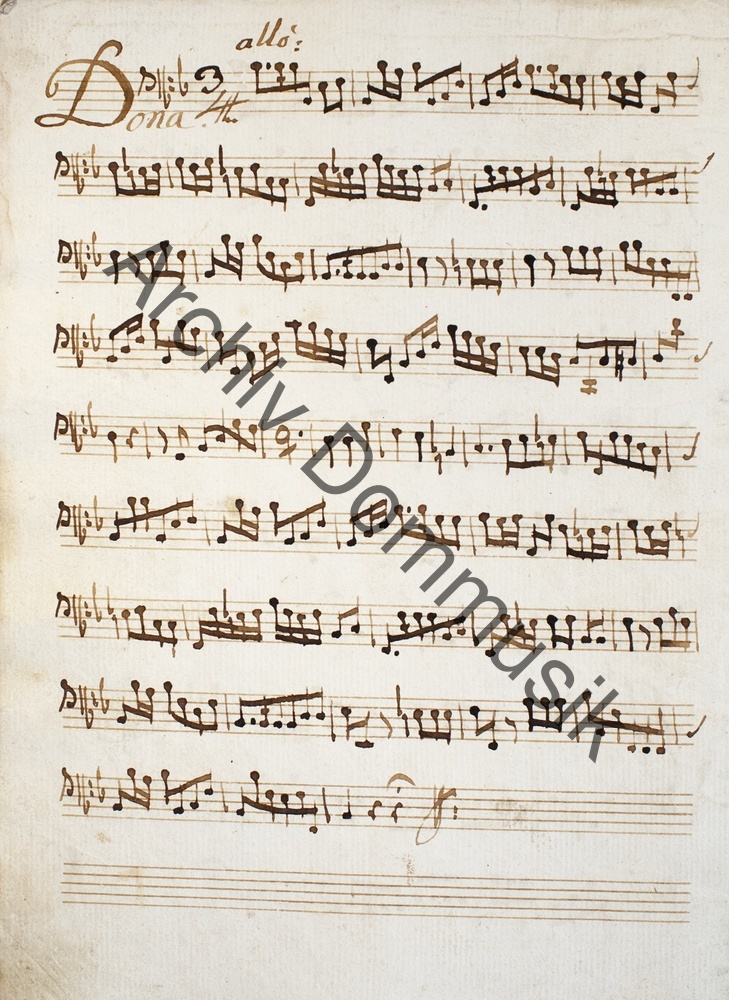 allô:
3
4
Dona
Archiv Dommusik